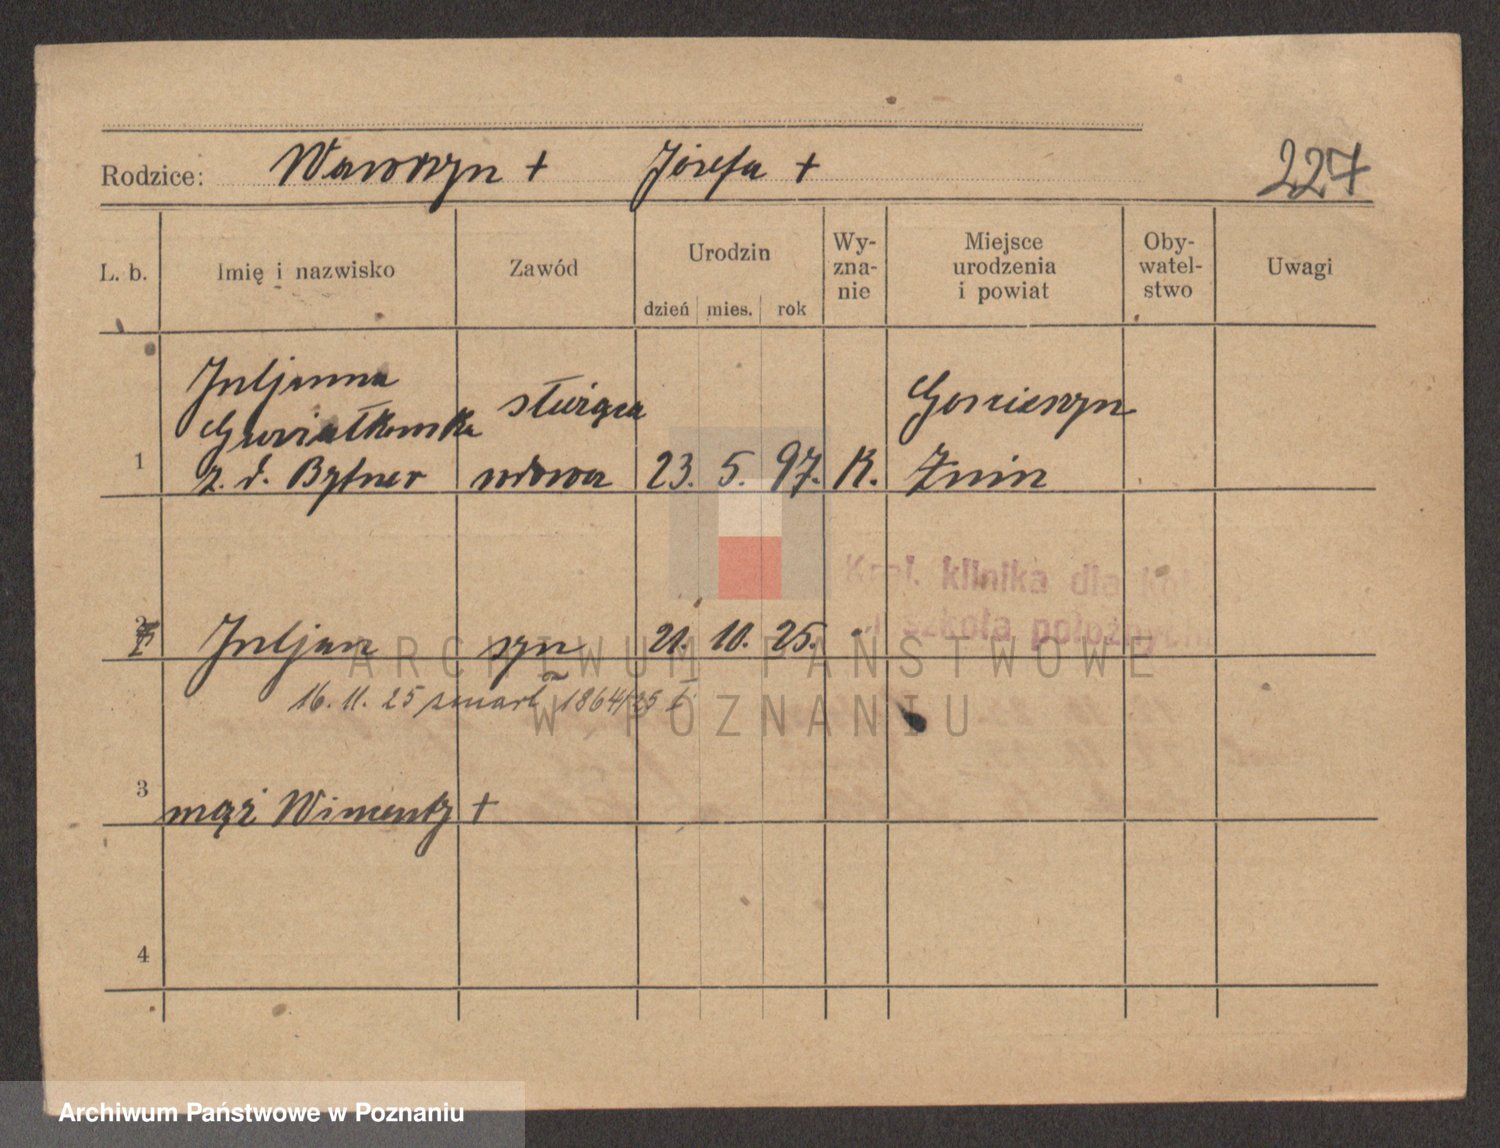 Rodzice: Wawrzyn + Józefa +
227
L. b. Imię i nazwisko Zawód Urodzin Wy-zna-nie Miejsce urodzenia i powiat Oby-watel-stwo Uwagi
dzień mies. rok
Juljanna
Gwiałkowska służąca Gościeszyn
1 z. d. Bytner wdowa 23. 5. 97. K. Żnin
Król. klinika dla kobi
i szkoła położnych
2 Juljan syn 21. 10. 25.
16. 11. 25 zmarł 1864/25
3 mąż Wincenty +
4
ARCHIWUM PAŃSTWOWE
W POZNANIU
Archiwum Państwowe w Poznaniu